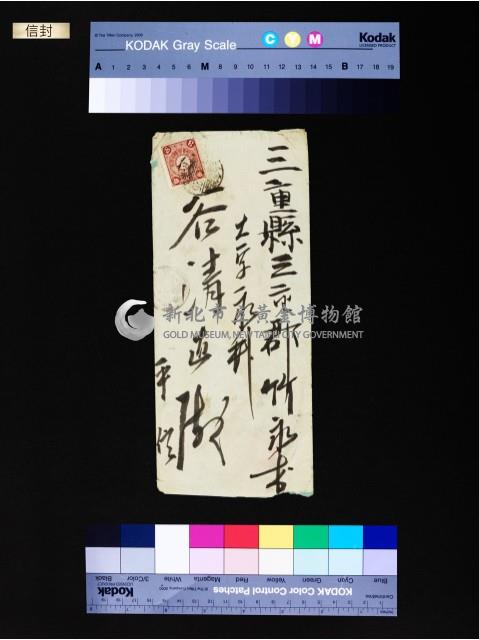 信封
© The Tiffen Company, 2000
KODAK Gray Scale
C Y M
Kodak
LICENSED PRODUCT
A 1 2 3 4 5 6 M 8 9 10 11 12 13 14 15 B 17 18 19
三重縣三重郡竹永村
大字永井
谷清
平信
新北市立黃金博物館
GOLD MUSEUM, NEW TAIPEI CITY GOVERNMENT
Blue Cyan Green Yellow Red Magenta White 3/Color Black
KODAK Color Control Patches
Kodak
LICENSED PRODUCT
© The Tiffen Company, 2000
Centimetres
Inches